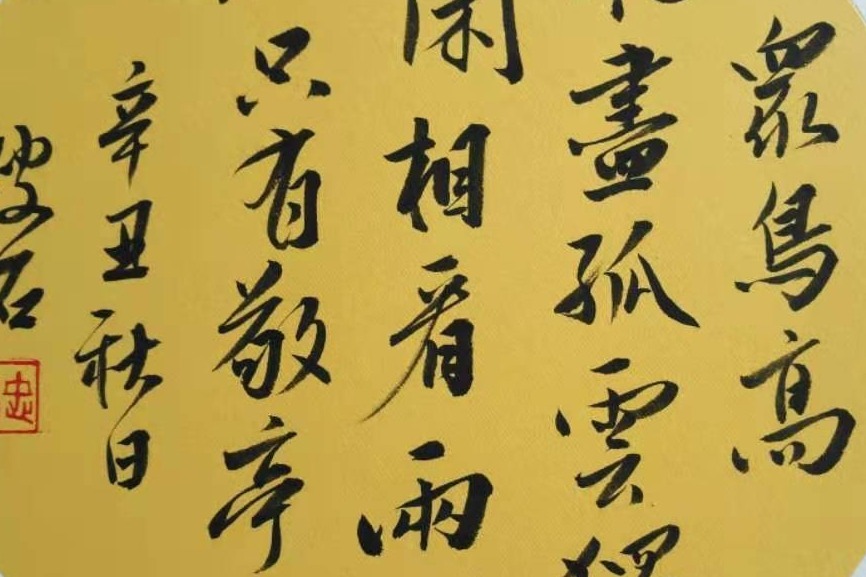 眾鳥高
盡孤雲
閑相看兩
只有敬亭
辛丑秋日
石